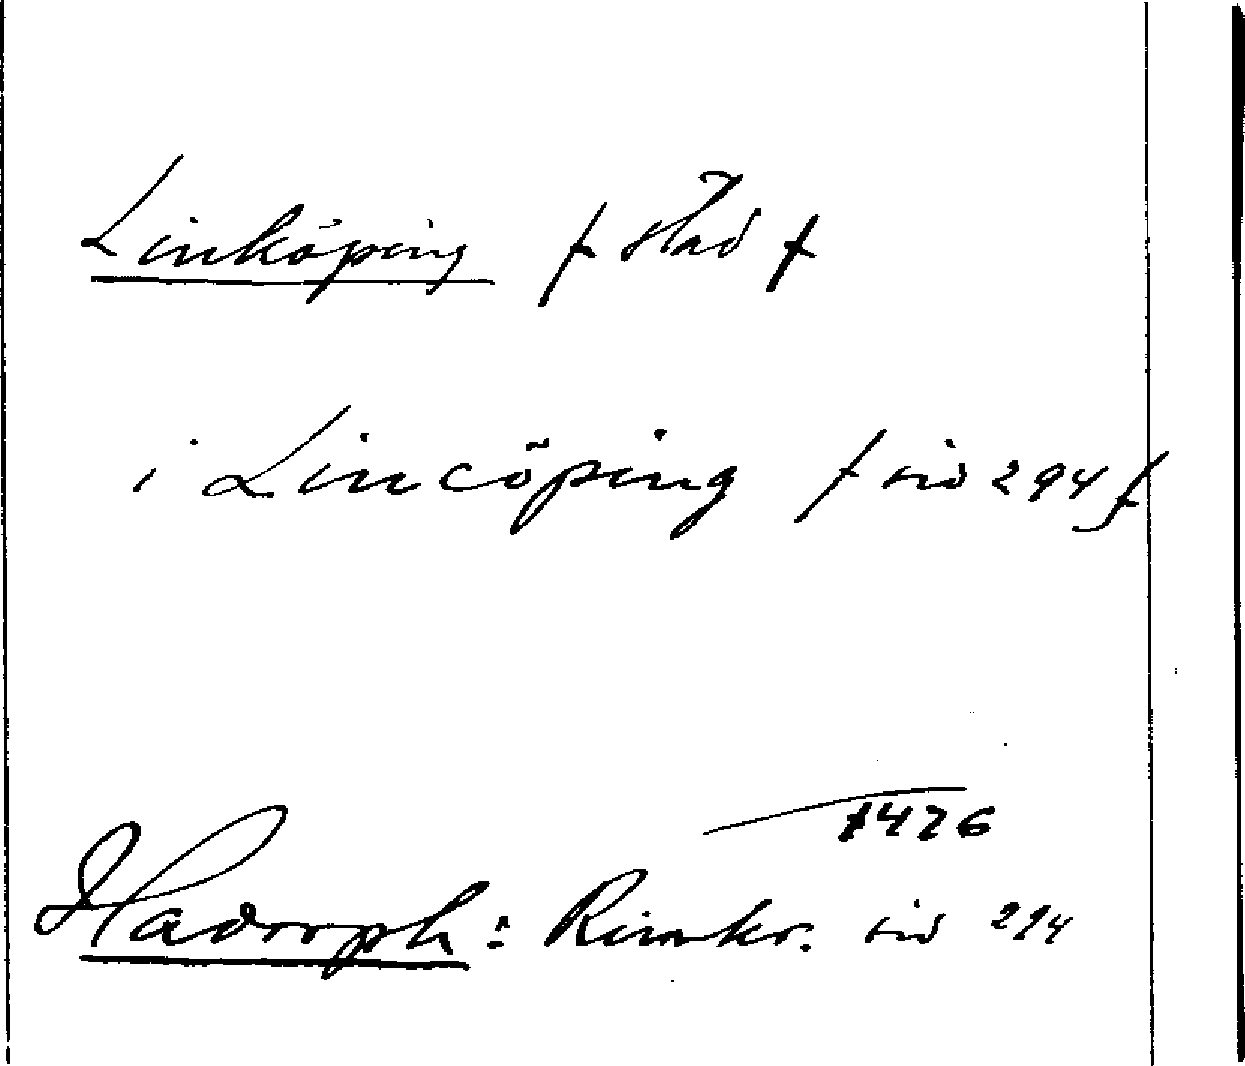 Linköping / stad /
i Lincöping / sid 294 /
1476
Hadorph: Rimkr. sid 294